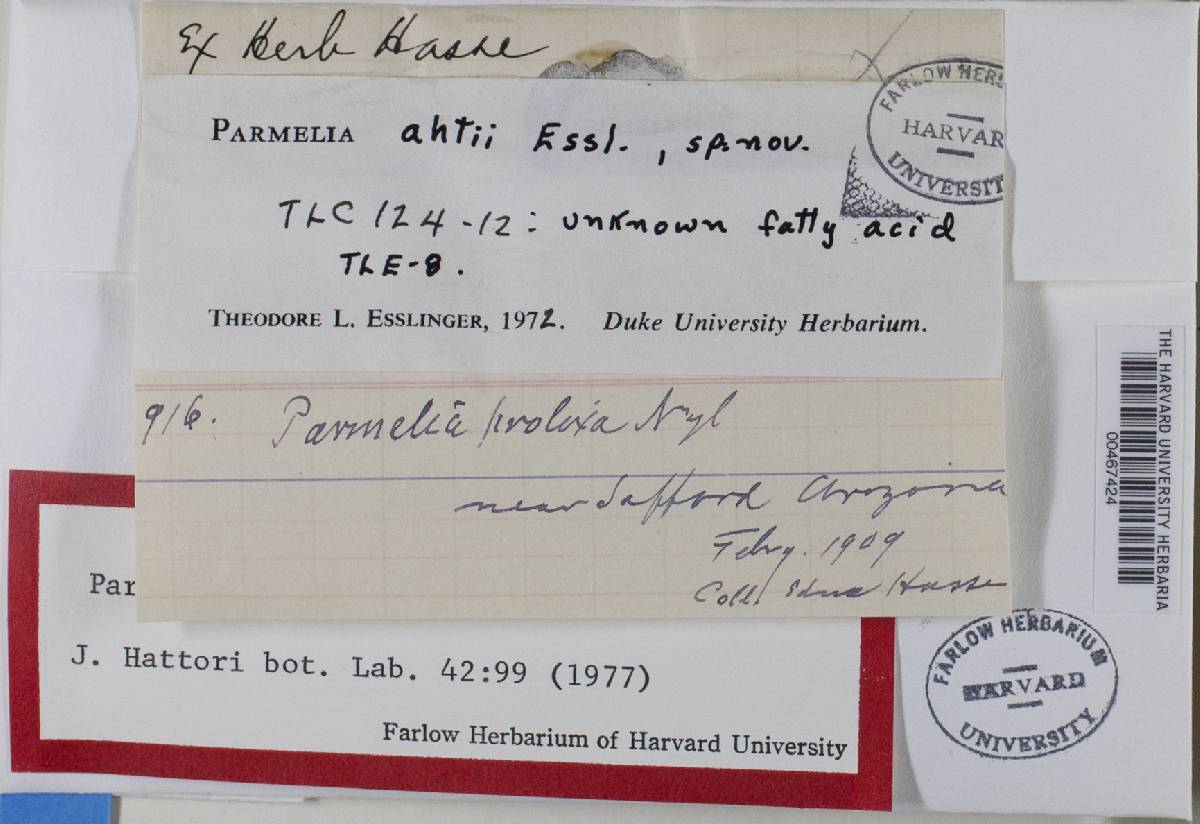 Ex Herb Hasse
FARLOW HER
HARVAR
UNIVERSIT
PARMELIA ahtii Essl., sp. nov.
TLC 124-12: unknown fatty acid
TLE-8.
THEODORE L. ESSLINGER, 1972. Duke University Herbarium.
916. Parmelia prolixa Nyl
near Safford Arozona
Febry. 1909
Coll. Edna Hasse
THE HARVARD UNIVERSITY HERBARIA
00467424
Par
J. Hattori bot. Lab. 42:99 (1977)
Farlow Herbarium of Harvard University
FARLOW HERBARIUM
HARVARD
UNIVERSITY